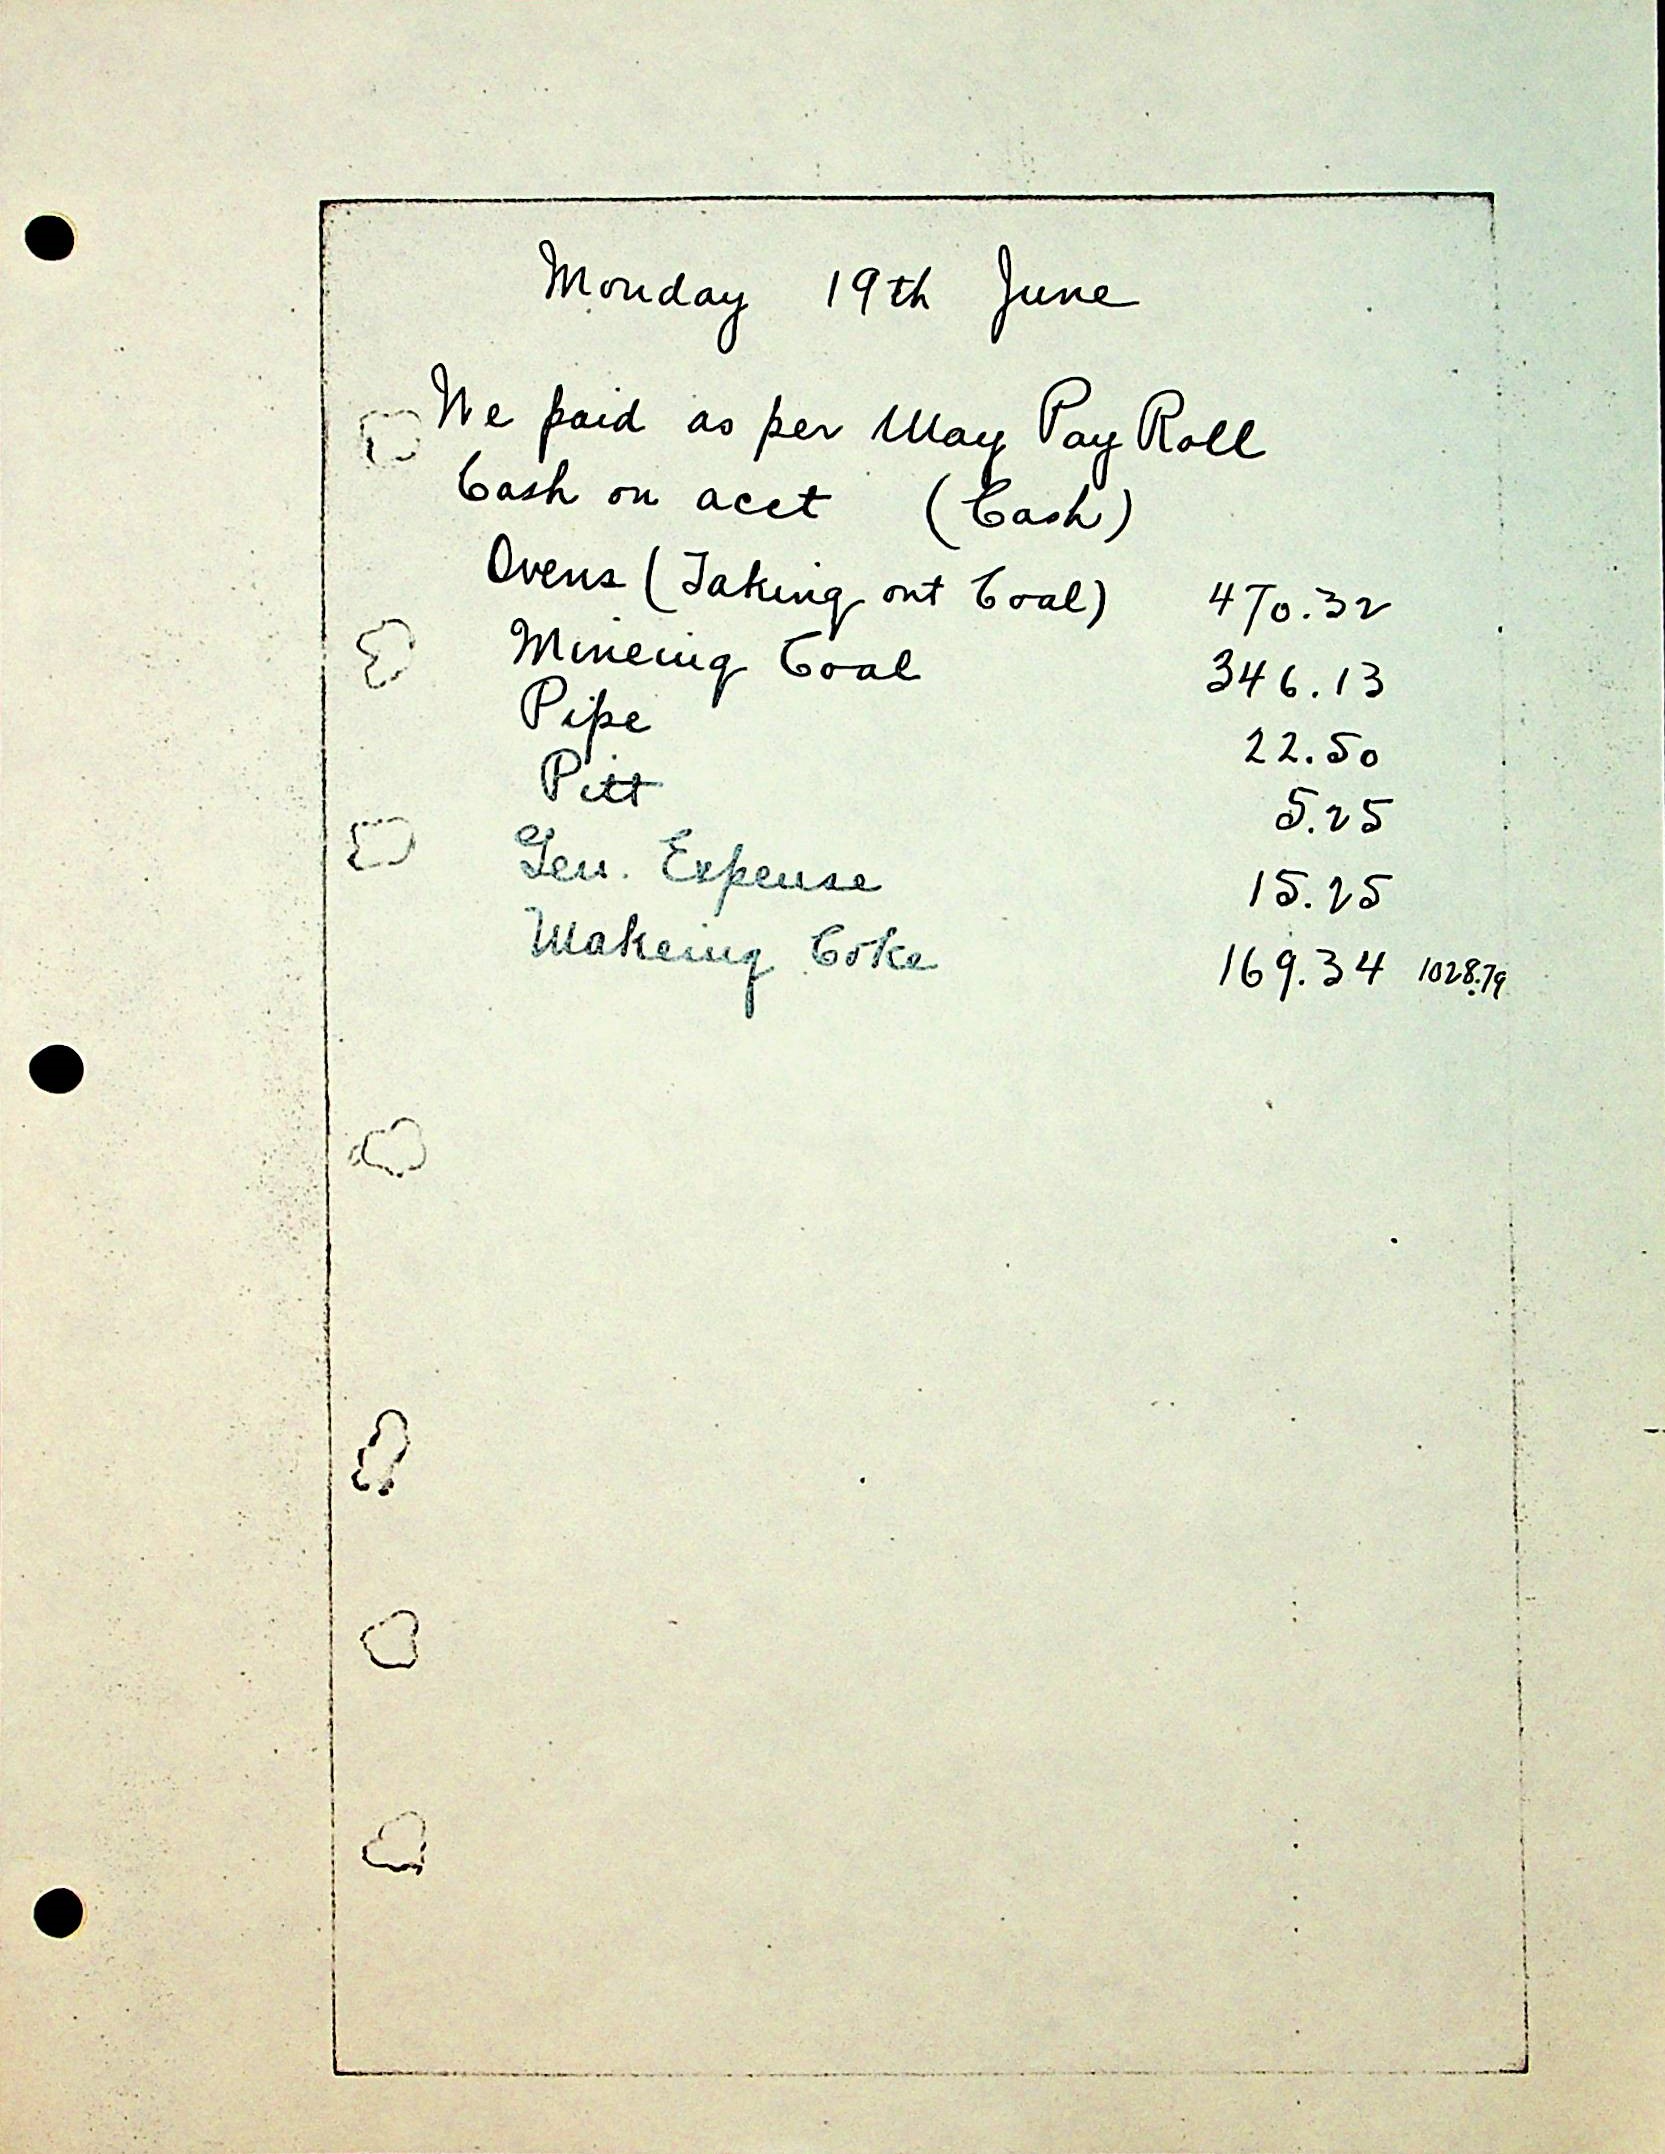 Monday 19th June
We paid as per May Pay Roll
Cash on acct (Cash)
Ovens (Taking out Coal) 470.32
Mineing Coal 346.13
Pipe 22.50
Pitt 5.25
Gen. Expense 15.25
Makeing Coke 169.34 1028.79